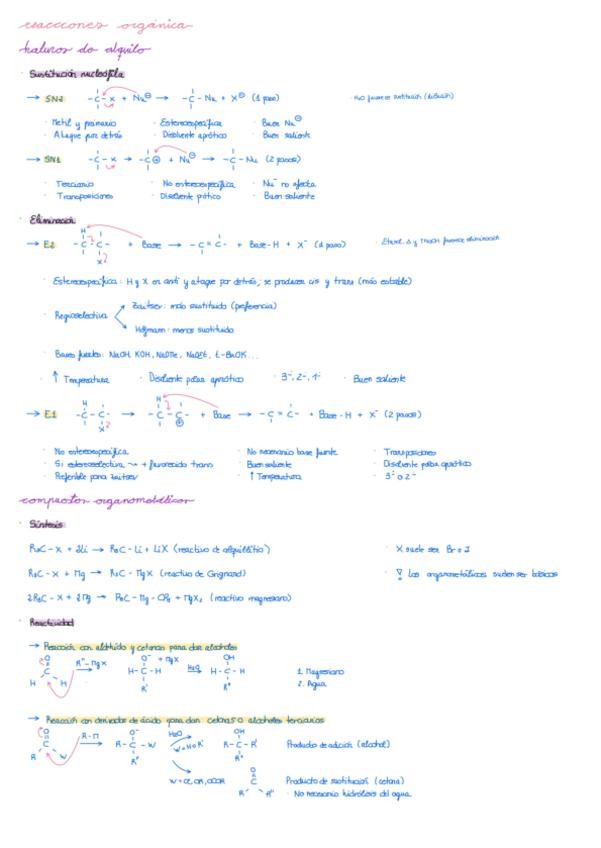 reacciones orgánica
haluros de alquilo
· Sustitución nucleófila
→ SN2 -C-X + Nu⊖ → -C-Nu + X⊖ (1 paso)
· Metil y primario · Estereoespecífica · Buen Nu⊖
· Ataque por detrás · Disolvente aprótico · Buen saliente
→ SN1 -C-X → -C⊕ + Nu⊖ → -C-Nu (2 pasos)
· Terciario · No estereoespecífica · Nu⁻ no afecta
· Transposiciones · Disolvente prótico · Buen saliente
· Eliminación
→ E2 H -C-C- X + Base → -C=C- + Base-H + X⁻ (1 paso)
· Estereoespecífica: H y X en anti y ataque por detrás, se producen cis y trans (más estable)
· Regioselectiva
Zaitsev: más sustituido (preferencia)
Hofmann: menos sustituido
· Bases fuertes: NaOH, KOH, NaOMe, NaOEt, t-BuOK...
· ↑ Temperatura · Disolvente polar aprótico · 3⁻, 2⁻, 1⁻ · Buen saliente
→ E1 H -C-C- X → H -C-C- ⊕ + Base → -C=C- + Base-H + X⁻ (2 pasos)
· No estereoespecífica · No necesario base fuerte · Transposiciones
· Si estereoselectiva → + favorecido trans · Buen saliente · Disolvente polar aprótico
· Preferible para Zaitsev · ↑ Temperatura · 3⁻ o 2⁻
compuestos organometálicos
· Síntesis
R₃C-X + 2Li → R₃C-Li + LiX (reactivo de alquillitio) · X suele ser Br o I
R₃C-X + Mg → R₃C-MgX (reactivo de Grignard) · Los organometálicos suelen ser básicos
2R₃C-X + 2Mg → R₃C-Mg-CR₃ + MgX₂ (reactivo magnesiano)
· Reactividad
→ Reacción con aldehído y cetonas para dar alcoholes
O C H H R''-MgX → O⁻ + MgX H-C-H R' H₂O → OH H-C-H R'
1. Magnesiano
2. Agua
→ Reacción con derivados de ácido para dar cetonas o alcoholes terciarios
O C R W R-M → O⁻ R-C-W R'' H₂O W=H o R' OH R-C-R' R'' Producto de adición (alcohol)
O C R' R'' Producto de sustitución (cetona)
· No necesario hidrólisis del agua